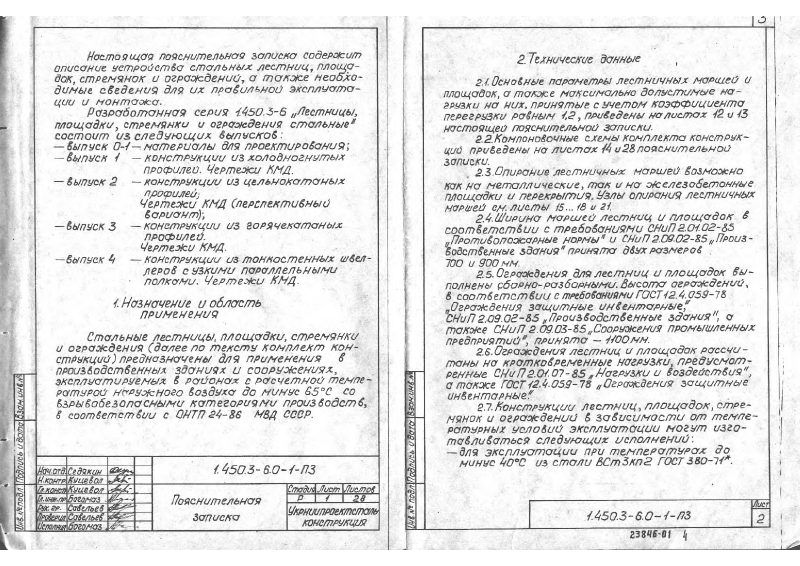 Настоящая пояснительная записка содержит
описание устройства стальных лестниц, площа-
док, стремянок и ограждений, а также необхо-
димые сведения для их правильной эксплуата-
ции и монтажа.
Разработанная серия 1.450.3-6 „Лестницы,
площадки, стремянки и ограждения стальные"
состоит из следующих выпусков:
— выпуск 0-1 — материалы для проектирования;
— выпуск 1 — конструкции из холодногнутых
профилей. Чертежи КМД.
— выпуск 2 — конструкции из цельнокатаных
профилей;
Чертежи КМД (перспективный
вариант);
— выпуск 3 — конструкции из горячекатаных
профилей.
Чертежи КМД.
— выпуск 4 — конструкции из тонкостенных швел-
леров с узкими параллельными
полками. Чертежи КМД.
1. Назначение и область
применения
Стальные лестницы, площадки, стремянки
и ограждения (далее по тексту комплект кон-
струкций) предназначены для применения в
производственных зданиях и сооружениях,
эксплуатируемых в районах с расчетной темпе-
ратурой наружного воздуха до минус 65°С со
взрывобезопасными категориями производств,
в соответствии с ОНТП 24-86 МВД СССР.
Инв.№подл. Подпись и дата Взам.инв.№
Нач.отд. Седякин
Н.контр. Куцевол
Гл.констр. Куцевол
Гл.инж.пр. Богомаз
Рук. гр. Савельев
Проверил Савельев
Исполнил Богомаз
1.450.3-6.0-1-ПЗ
Пояснительная
записка
Стадия Лист Листов
Р 1 28
Укрниипроектсталь
конструкция
3
2. Технические данные
2.1. Основные параметры лестничных маршей и
площадок, а также максимально допустимые на-
грузки на них, принятые с учетом коэффициента
перегрузки равным 1,2, приведены на листах 12 и 13
настоящей пояснительной записки.
2.2. Компоновочные схемы комплекта конструк-
ций приведены на листах 14 и 28 пояснительной
записки.
2.3. Опирание лестничных маршей возможно
как на металлические, так и на железобетонные
площадки и перекрытия. Узлы опирания лестничных
маршей см. листы 15...18 и 21.
2.4. Ширина маршей лестниц и площадок в
соответствии с требованиями СНиП 2.01.02-85
„Противопожарные нормы" и СНиП 2.09.02-85 „Произ-
водственные здания" принята двух размеров
700 и 900 мм.
2.5. Ограждения для лестниц и площадок вы-
полнены сборно-разборными. Высота ограждений,
в соответствии с требованиями ГОСТ 12.4.059-78
„Ограждения защитные инвентарные,"
СНиП 2.09.02-85 „Производственные здания", а
также СНиП 2.09.03-85 „Сооружения промышленных
предприятий", принята — 1100 мм.
2.6. Ограждения лестниц и площадок рассчи-
таны на кратковременные нагрузки, предусмот-
ренные СНиП 2.01.07-85 „Нагрузки и воздействия",
а также ГОСТ 12.4.059-78 „Ограждения защитные
инвентарные."
2.7. Конструкции лестниц, площадок, стре-
мянок и ограждений в зависимости от темпе-
ратурных условий эксплуатации могут изго-
тавливаться следующих исполнений:
— для эксплуатации при температурах до
минус 40°С из стали ВСт3кп2 ГОСТ 380-71*.
Инв.№ подл. Подпись и дата Взам.инв.№
1.450.3-6.0-1-ПЗ
Лист
2
23846-01 4